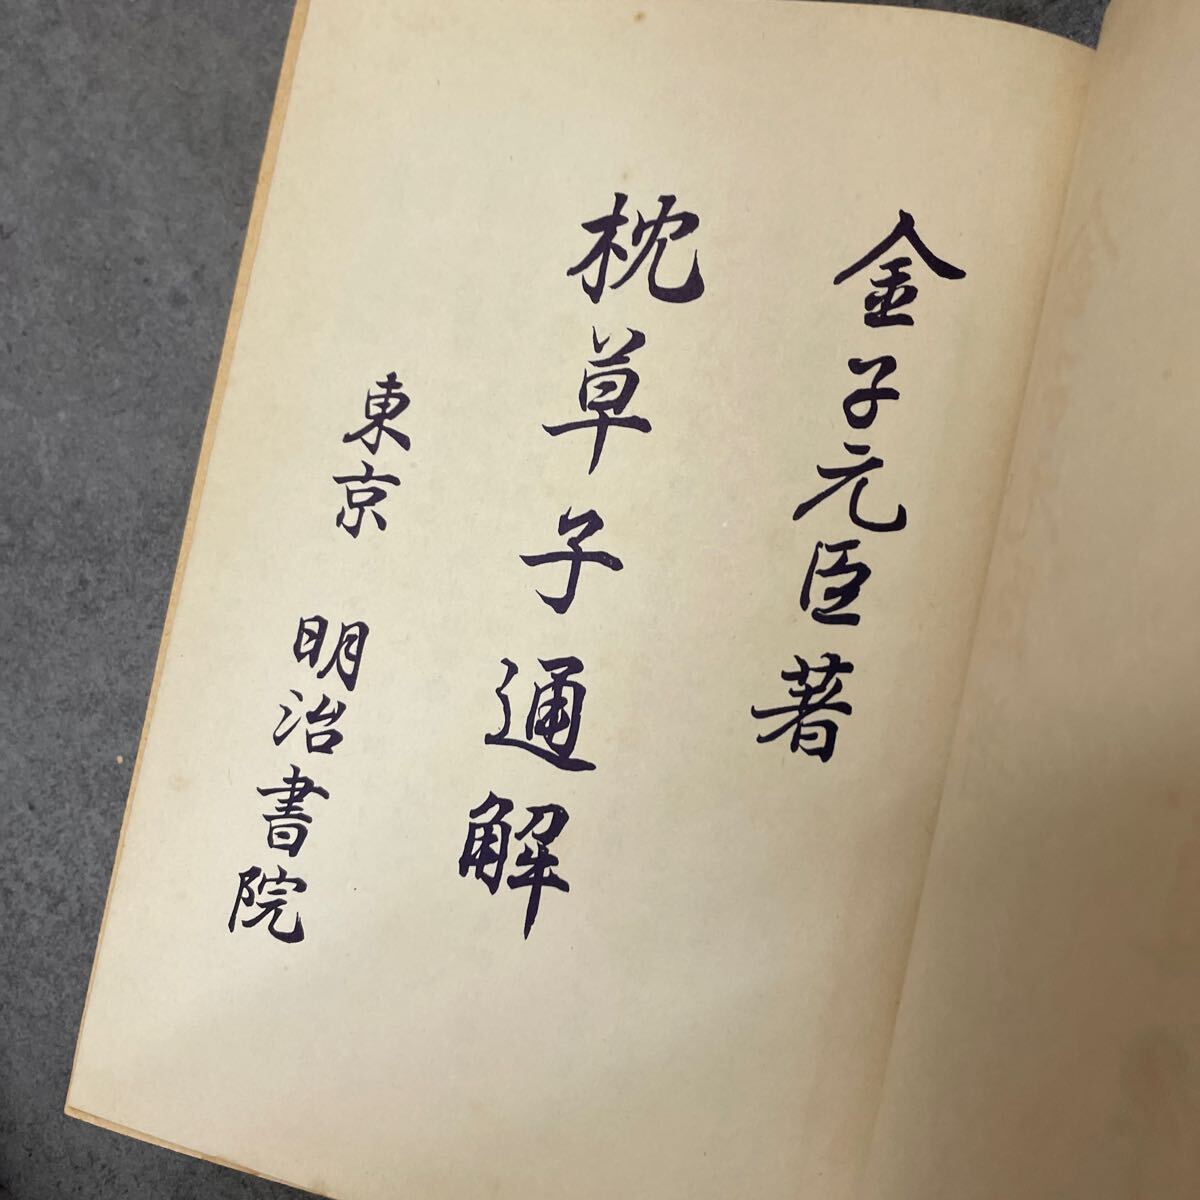 金子元臣著
枕草子通解
東京 明治書院